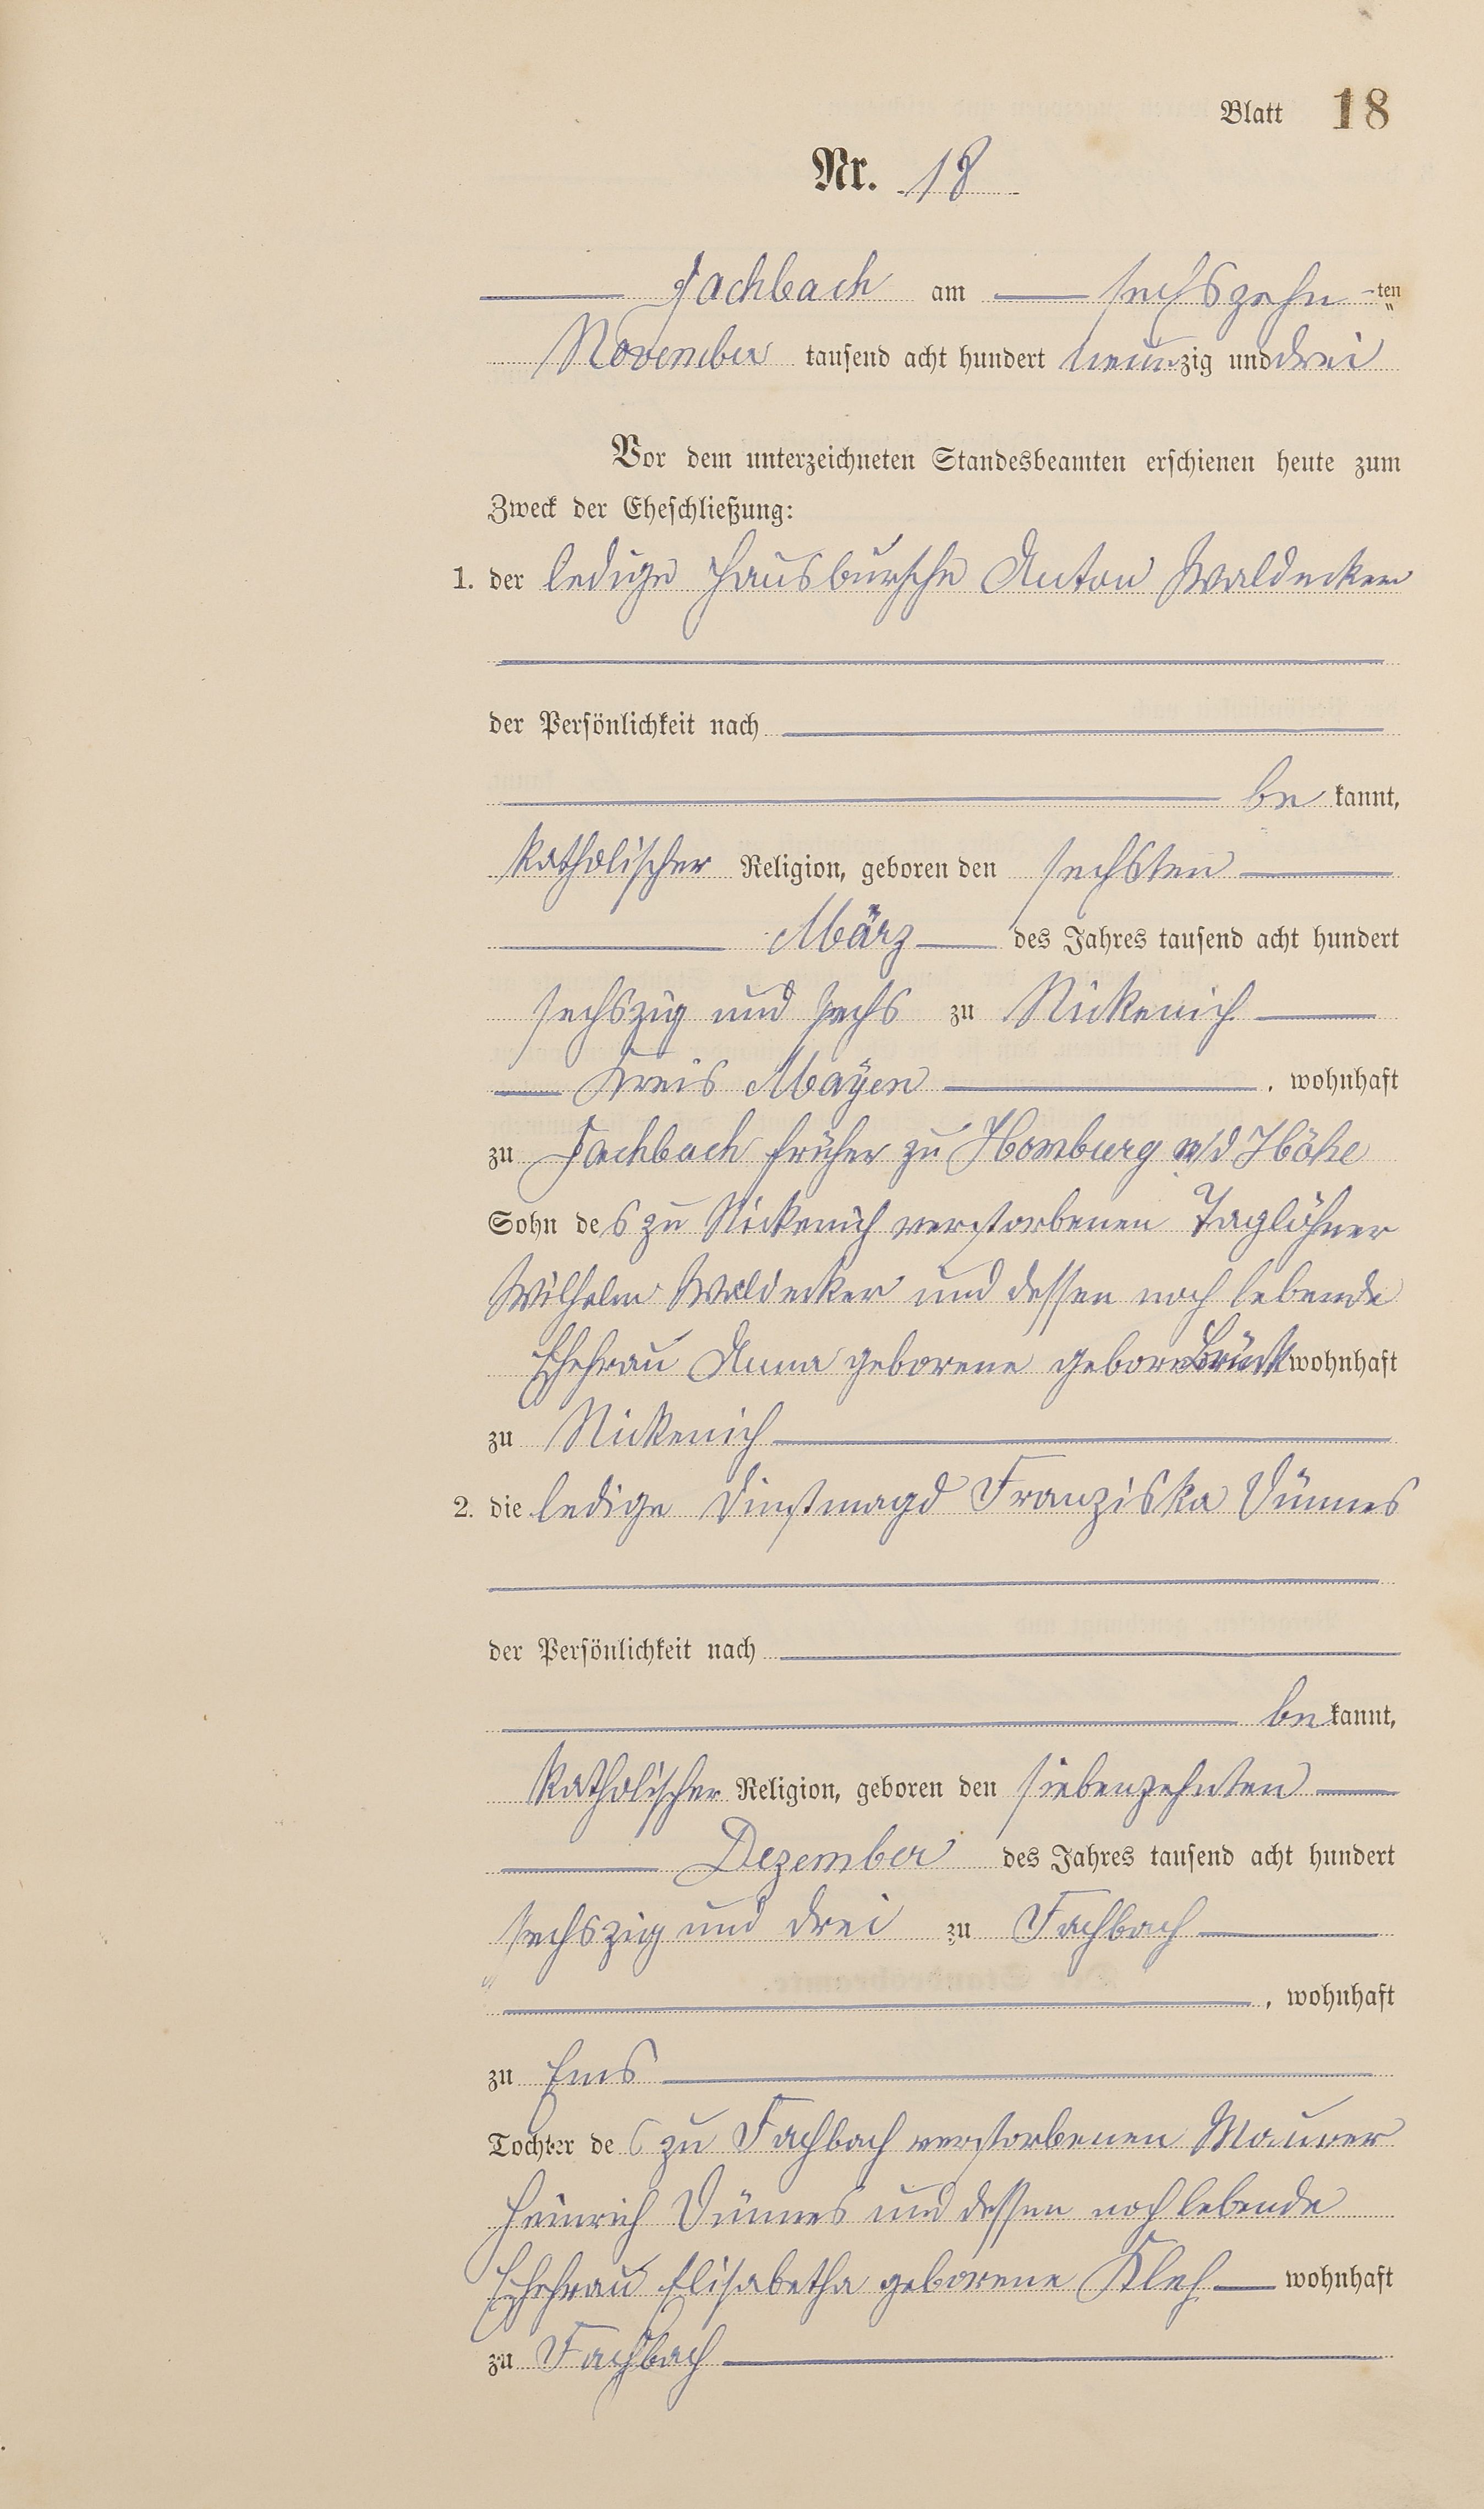 Blatt 18
Nr. 18
Fachbach am sechszehnten
November tausend acht hundert neunzig und drei
Vor dem unterzeichneten Standesbeamten erschienen heute zum
Zweck der Eheschließung:
1. der ledige Hausbursche Anton Waldecker
der Persönlichkeit nach
be kannt,
katholischer Religion, geboren den sechsten
März des Jahres tausend acht hundert
sechszig und sechs zu Nickenich
Kreis Mayen, wohnhaft
zu Fachbach früher zu Homburg v/d Höhe
Sohn des zu Nickenich verstorbenen Taglöhner
Wilhelm Waldecker und dessen noch lebende
Ehefrau Anna geborene geborene Brück wohnhaft
zu Nickenich
2. die ledige Dinstmagd Franziska Dünnes
der Persönlichkeit nach
be kannt,
katholischer Religion, geboren den siebenzehnten
Dezember des Jahres tausend acht hundert
sechszig und drei zu Fachbach
, wohnhaft
zu Ems
Tochter des zu Fachbach verstorbenen Maurer
Heinrich Dünnes und dessen noch lebende
Ehefrau Elisabetha geborene Kleh wohnhaft
zu Fachbach